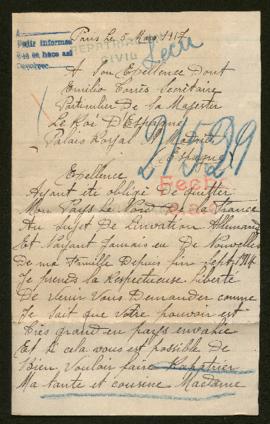 Paris Le 5 Mars 1917
Pedir informes
DEPARTA
CIVIL
A Son Exellence Dont
Emilio Torrès Secrétaire
Particulier De Sa Majester
Le Roi D'Espagne
Palais Royal Madrid
Espagne
21529
Exellence
Fech
Ayant ete obligé De Quitter
Mon Pays Le Nord De la France
Au Sujet De L'invation Allemand
Et N'ayant Jamais eu De Nouvelles
De ma Famille Depuis fin Sept 1914
Je prends la Respectueuse Liberté
De venir Vous Demander comme
Je sait que Votre pouvoir est
très grand en pays envahie
Et si cela vous est possible de
Bien Vouloir faire
Ma tante et cousine Madame